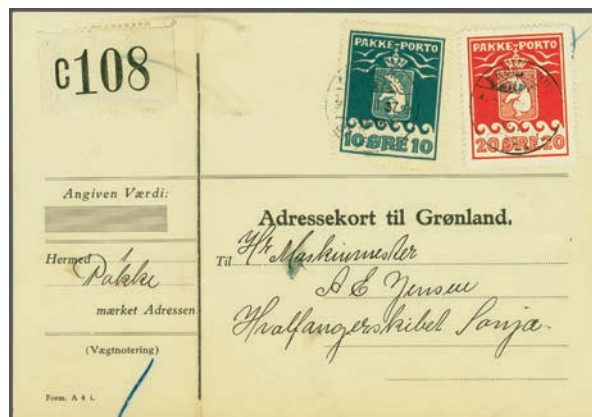 c108
PAKKE-PORTO
10 ØRE 10
PAKKE-PORTO
20 ØRE 20
Angiven Værdi:
Hermed 1
Pakke
mærket Adressen
(Vægtnotering)
Form. A 4 i.
Adressekort til Grønland.
Til Hr Maskinmester
A E Jensen
Hvalfangerskibet Sonja.